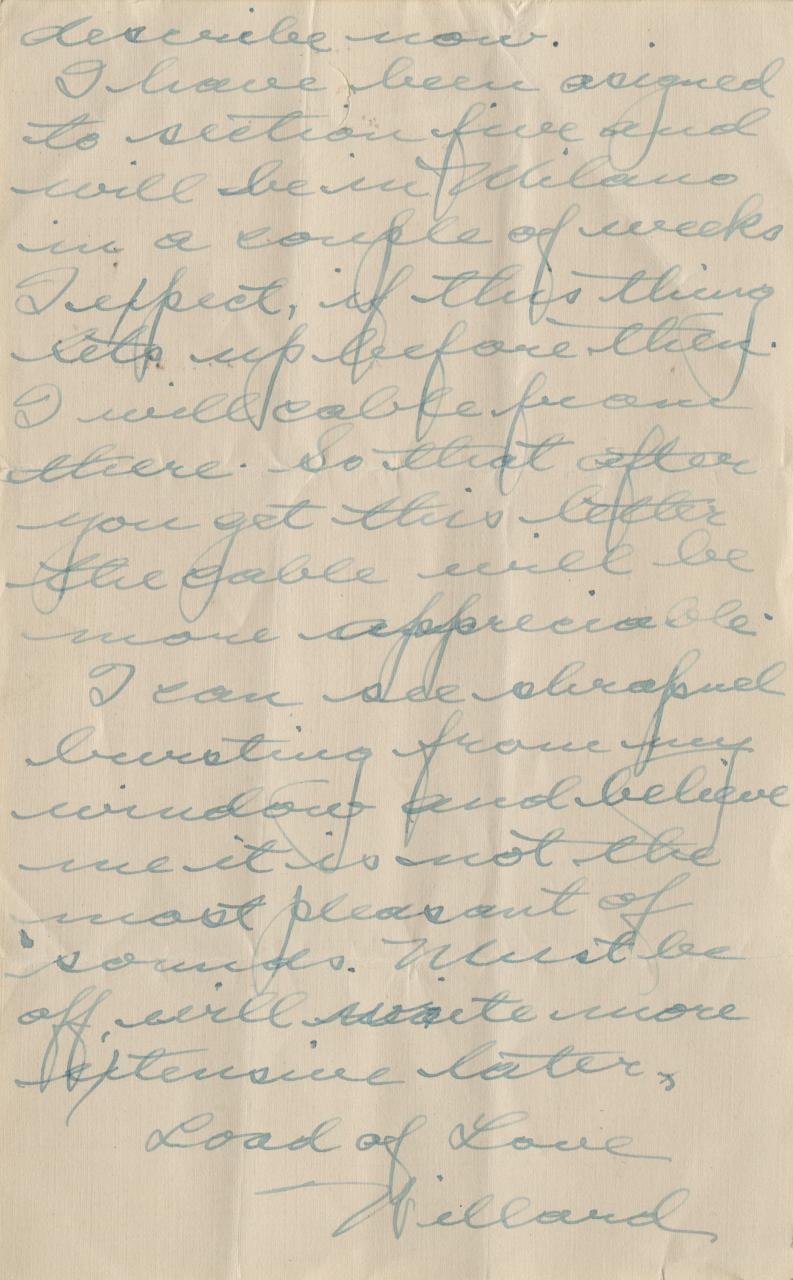 describe now.
I have been asigned
to section five and
will be in Milano
in a couple of weeks
I expect, if this thing
lets up before then.
I will cable from
there. So that after
you get this letter
the cable will be
more appreciable.
I can see shrapnel
bursting from my
window and believe
me it is not the
most pleasant of
sounds. Must be
off, will write more
extensive later,
Load of Love
Willard